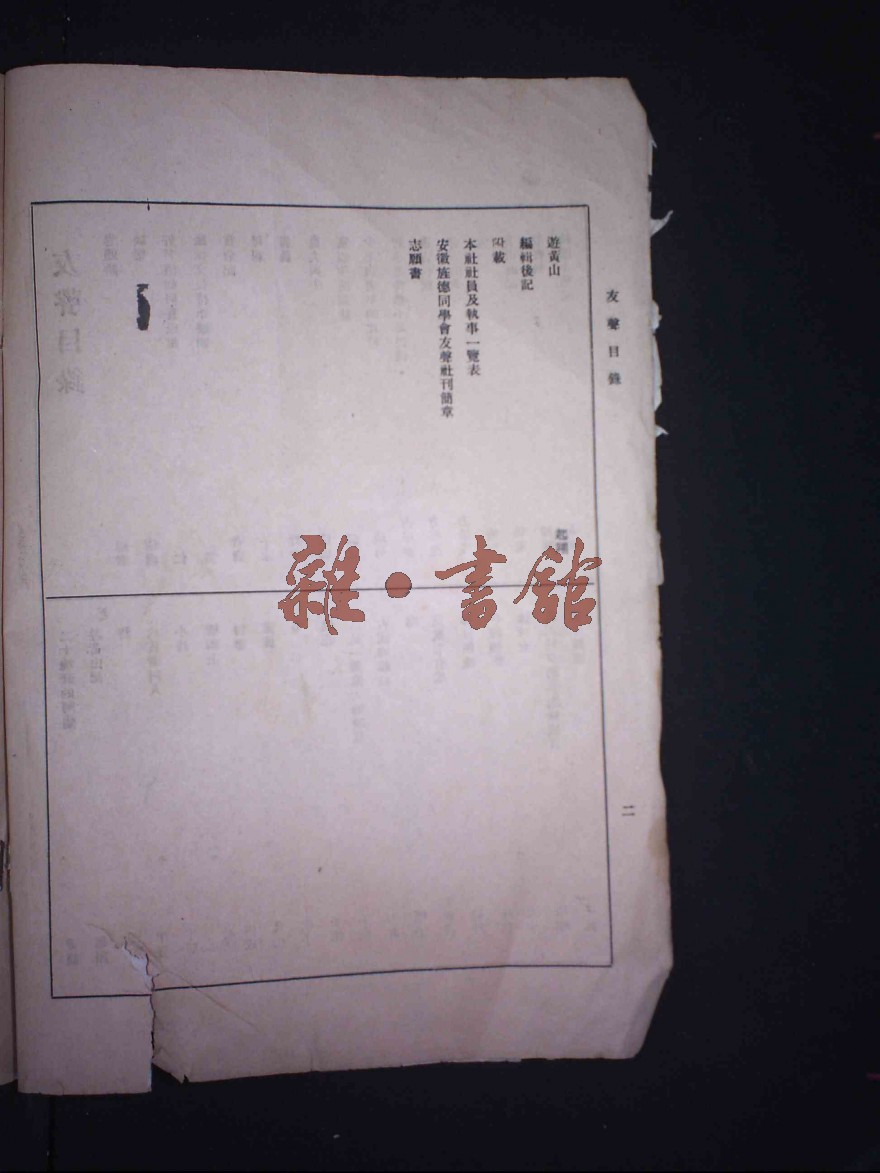 友聲目錄
二
遊黃山
編輯後記
附載
本社社員及執事一覽表
安徽旌德同學會友聲社刊簡章
志願書
雜·書館